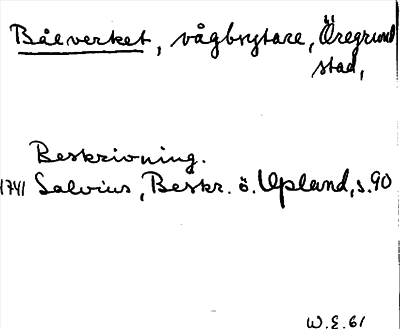 Bålverket, vågbrytare, Öregrund
stad,
Beskrivning.
1741 Salvius, Beskr. ö. Upland, s. 90
W.E. 61